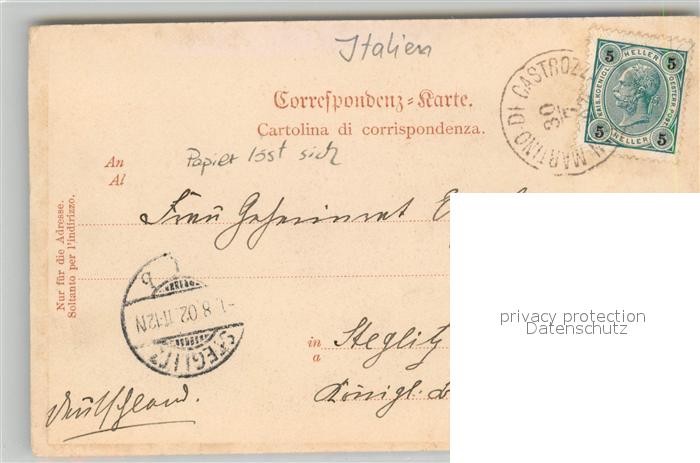 Italien
Correspondenz-Karte.
Cartolina di corrispondenza.
Papier löst sich
An
Al
Nur für die Adresse.
Soltanto per l'indirizzo.
Frau Geheimrat
in Steglitz
a
Königl.
Deutschland.
S. MARTINO DI CASTROZZA
30
5 HELLER 5
KAIS. KOENIGL. OESTERR. POST
5 HELLER 5
b
STEGLITZ
-1.8.02.11-12N
privacy protection
Datenschutz